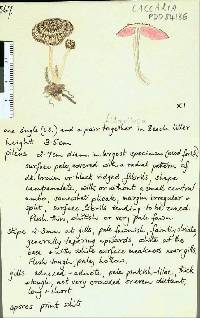 LACCARIA
PDD 54136
x1
one single (L.S.) and a pair together in Beech litter
height 3-5cm
pileus 2-4cm diam in largest specimen
surface pale, covered with a radial pattern of
dk. brown or black ridged fibrils, shape
campanulate, with or without a small central
umbo, somewhat pleate, margin irregular &
split, surface fibrils tending to be
Flesh thin, whitish or very pale fawn.
stipe 2-3mm at gills, pale fawnish, faintly striate
generally tapering upwards, white at the
base + white surface near gills,
Flesh tough, pale, hollow.
gills adnexed-adnate, pale pinkish-lilac, thick
& tough, not very crowded or even distant,
long + short
spores print white